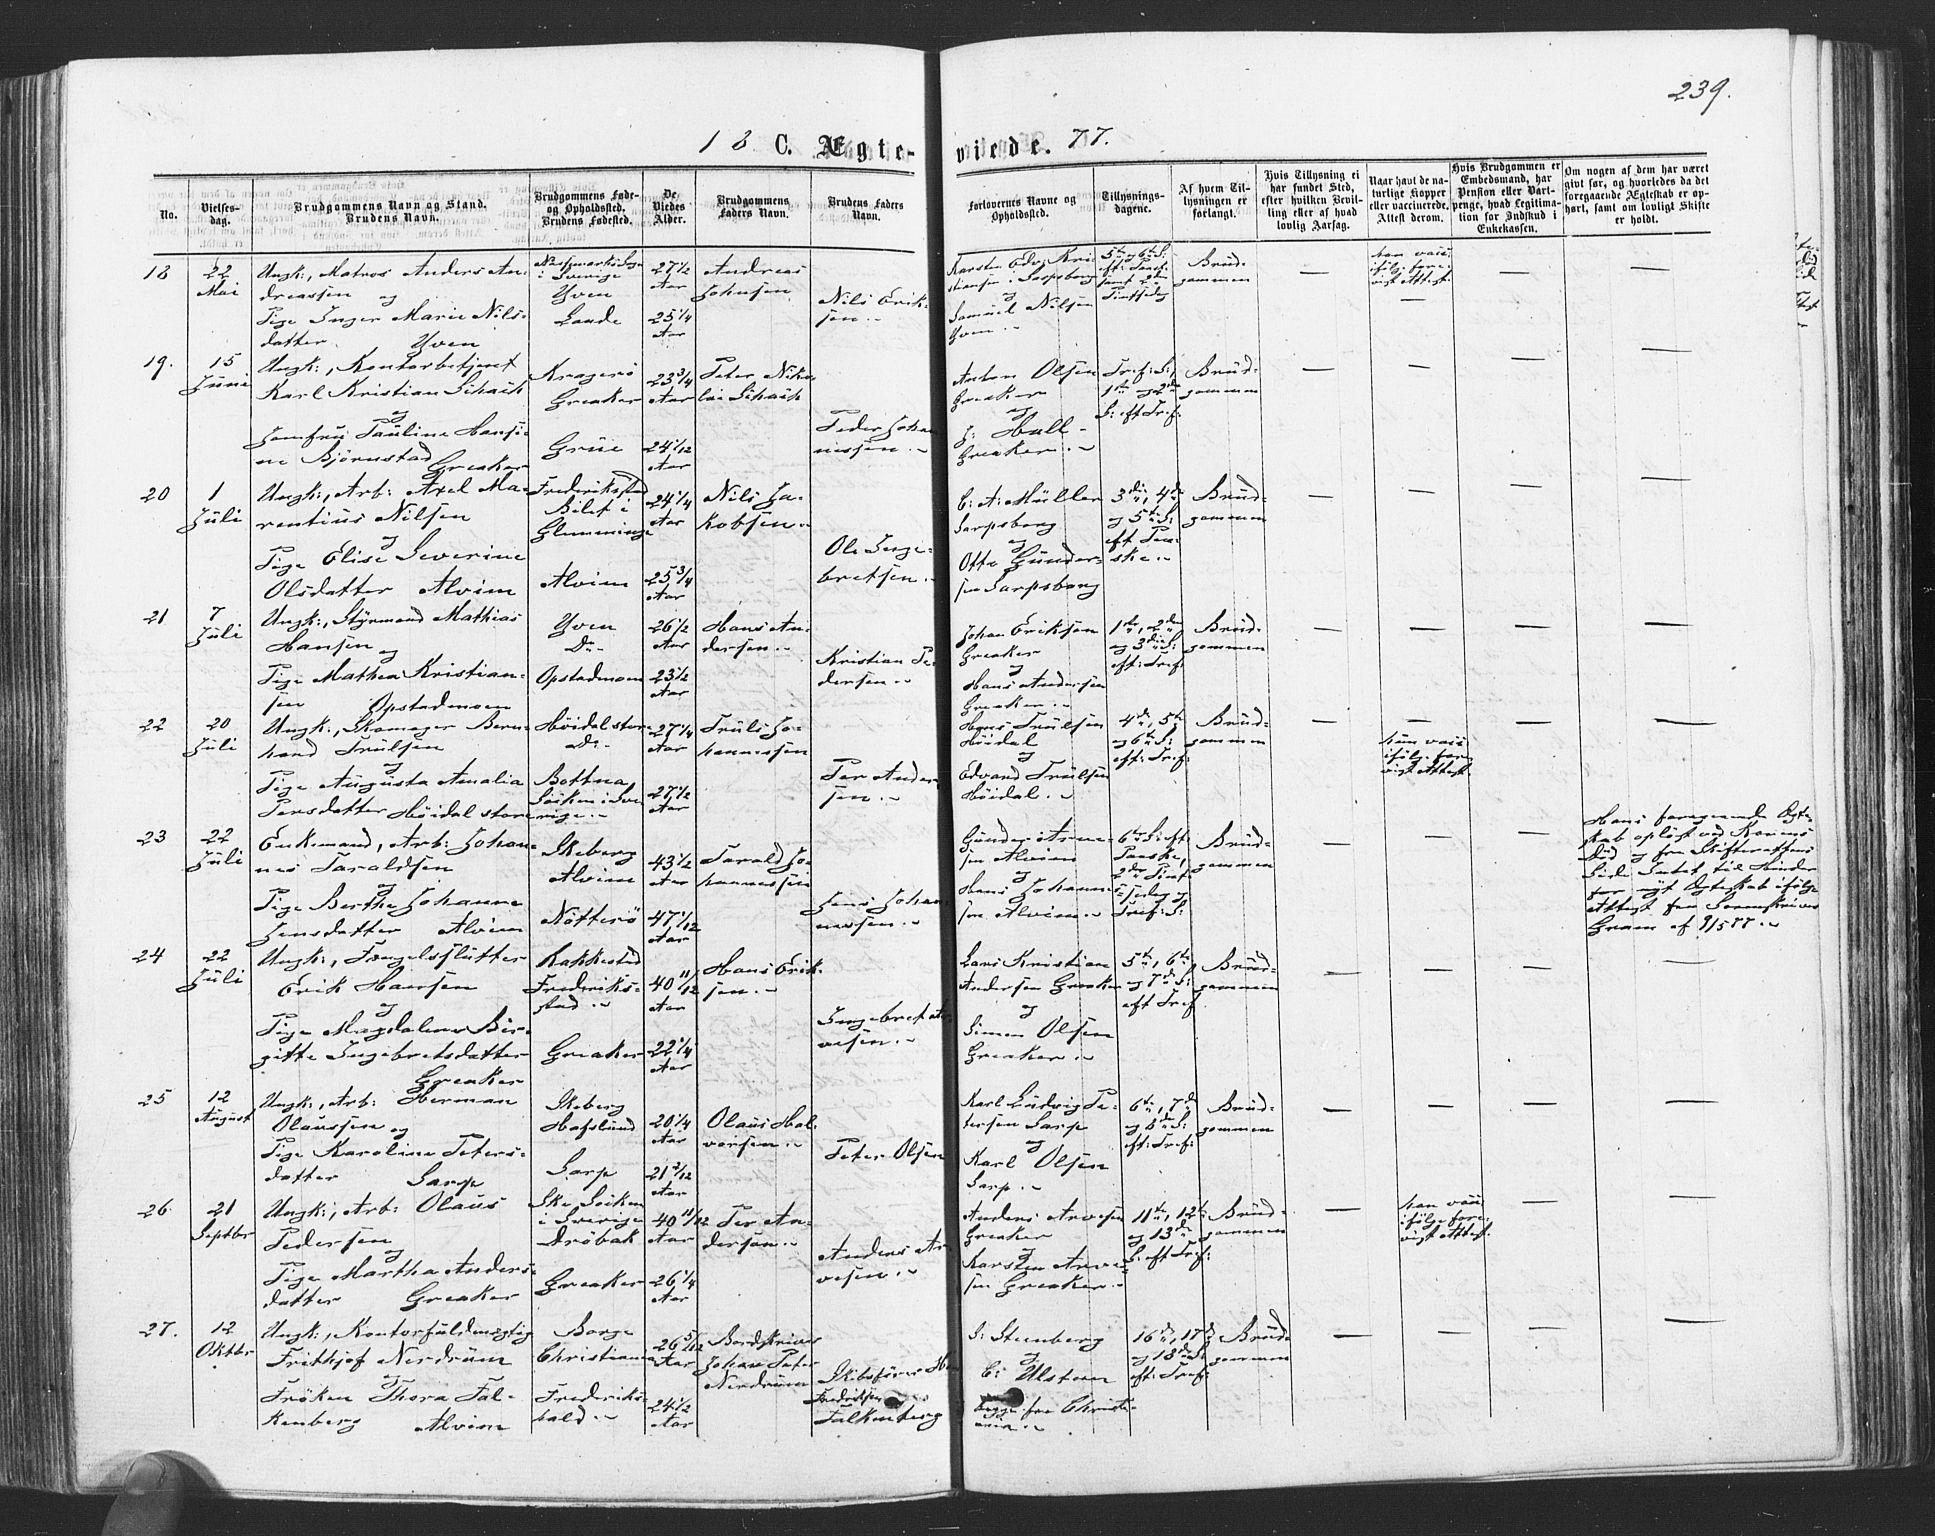 239.
18 C. Ægte- viede. 77.
No.
Vielses-
dag.
Brudgommens Navn og Stand.
Brudens Navn.
Brudgommens Føde-
og Opholdssted.
Brudens Fødested.
De
Viedes
Alder.
Brudgommens
Faders Navn.
Brudens Faders
Navn.
Forlovernes Navne og
Opholdssted.
Tillysnings-
dagene.
Af hvem Til-
lysningen er
forlangt.
Hvis Tillysning ei
har fundet Sted,
efter hvilken Bevil-
ling eller af hvad
lovlig Aarsag.
Naar havt de na-
turlige Kopper
eller vaccinerede.
Attest derom.
Hvis Brudgommen er
Embedsmand, har
Pension eller Vart-
penge, hvad Legitima-
tion for Indskud i
Enkekassen.
Om nogen af dem har været
givt før, og hvorledes da det
foregaaende Ægteskab er op-
hørt, samt om lovligt Skifte
er holdt.
18
22
Mai
Ungk:, Matros Anders An-
dreassen og
Pige Inger Marie Nils-
datter Yven
i Sverige
Yven
Lande
27 1/2
Aar
25 1/4
Aar
Andreas
Johnsen
Nils Erik-
sen.
Karsten Edv. Kri-
stiansen, Sarpsborg
og
Samuel Nilsen
Yven.
5te og 6te S:
eft: Paask:
samt 2den
Pintsedag
Brud-
gommen
—
Hun vacc:
ifølge fore-
vist Attest.
—
—
—
19.
15
Juni
Ungk:, Kontorbetjent
Karl Kristian Schack
og
Jomfru Pauline Hansi-
ne Bjørnstad
Greaker
Kragerø
Greaker
Grue
23 3/4
Aar
24 1/12
Aar
Peter Niko-
lai Schack
Peder Johan-
nissen.
Anton Olsen
Greaker
og
J: Hall
Greaker.
Tref: S:,
1ste og 2den
S: eft Tref:
Brud-
gommen
—
—
—
—
20
1
Juli
Ungk:, Arb: Axel Ma-
rentius Nilsen
og
Pige Elise Severine
Olsdatter Alvim
Frederikstad
Bilet i
Glemminge
Alvim
24 1/4
Aar
25 3/4
Aar
Nils Ja-
kobsen.
Ole Inge-
bretsen.
C: A: Müller
Sarpsborg
og
Otto Gunder-
sen Sarpsborg
3die, 4de
og 5te S:
eft Paa-
ske.
Brud-
gommen
—
—
—
—
21
7
Juli
Ungk:, Styrmand Mathias
Hansen og
Pige Mathea Kristian-
sen Opstadmoen
Yven
Do
Opstadmoen
26 1/2
Aar
23 1/2
Aar
Hans An-
dersen.
Kristian Pe-
dersen.
Johan Eriksen
Greaker
og
Hans Andersen
Greaker.
1ste, 2den
og 3die S:
eft: Tref:
Brud-
gommen
—
—
—
—
22
20
Juli
Ungk:, Skomager Bern-
hard Trulsen
og
Pige Augusta Amalia
Persdatter Høidal store
Høidal store
Do
Bottna
Socken i Sve-
rige.
27 1/4
Aar
27 1/2
Aar
Truls Jo-
hannessen
Per Ander-
sen.
Hans Trulsen
Høidal
og
Edvard Trulsen
Høidal.
4de, 5te
og 6te S:
eft: Tref:
Brud-
gommen
—
—
Hun vacc:
ifølge fore-
vist Attest
—
—
23
22
Juli
Enkemand, Arb: Johan-
nes Taraldsen
og
Pige Berthe Johanne
Jensdatter Alvim
Skeberg
Alvim
Nøtterø
43 1/2
Aar
47 1/12
Aar
Tarald Jo-
hannessen
Jens Johan-
nessen.
Gunder Arne-
sen Alvim
og
Hans Johannes-
sen Alvim.
6te S: eft:
Paaske,
2den Pint-
sedag og
Tref: S:
Brud-
gommen
—
—
—
Hans foregaaende Ægte-
skab opløst ved Konens
Død og fra Skifterettens
Side Intet til Hinder
for nyt Ægteskab ifølge
Attest fra Sorenskriver
Gram af 9/5 77.
24
22
Juli
Ungk:, Fængelsslutter
Erik Hansen
og
Pige Magdalena Bir-
gitte Ingebretsdatter
Greaker
Rakkestad
Frederiks-
stad.
Greaker
40 11/12
Aar
22 1/4
Aar
Hans Erik-
sen.
Ingebret Ar-
vesen.
Lars Kristian
Andersen Greaker
og
Simen Olsen
Greaker.
5te, 6te
og 7de S:
eft Tref:
Brud-
gommen
—
—
—
—
25
12
August
Ungk:, Arb: Herman
Olaussen og
Pige Karoline Peters-
datter Sarp
Skeberg
Hafslund
Sarp
20 1/4
Aar
21 2/12
Aar
Olaus Hal-
vorsen.
Peter Olsen
Karl Ludvig Pe-
tersen Sarp
og
Karl Olsen
Sarp.
6te, 7de
og 8de S:
eft: Tref:
Brud-
gommen
—
—
—
—
26
21
Septbr
Ungk:, Arb: Olaus
Pedersen
og
Pige Martha Anders-
datter Greaker
Ske Socken
i Sverige
Drøbak
Greaker
40 11/12
Aar
26 1/4
Aar
Per An-
dersen.
Anders Ar-
vesen.
Anders Arvesen
Greaker
og
Karsten Arve-
sen Greaker.
11te, 12te
og 13de
S: eft Tref:
Brud-
gommen
—
Han vacc:
ifølge fore-
vist Attest.
—
—
27.
12
Oktbr
Ungk:, Kontorfuldmægtig
Frithjof Nerdrum
og
Frøken Thora Fal-
kenberg Alvim
Borge
Christiania
Frederiks-
hald.
26 5/12
Aar
24 1/2
Aar
Bordskriver
Johan Peter
Nerdrum
Skibsfører H
Fredriksen
Falkenberg
S: Stenberg
og
C: Ulstrun
begge fra Christi-
ania.
16de, 17de
og 18de S:
eft: Tref:
Brud-
gommen
—
—
—
—